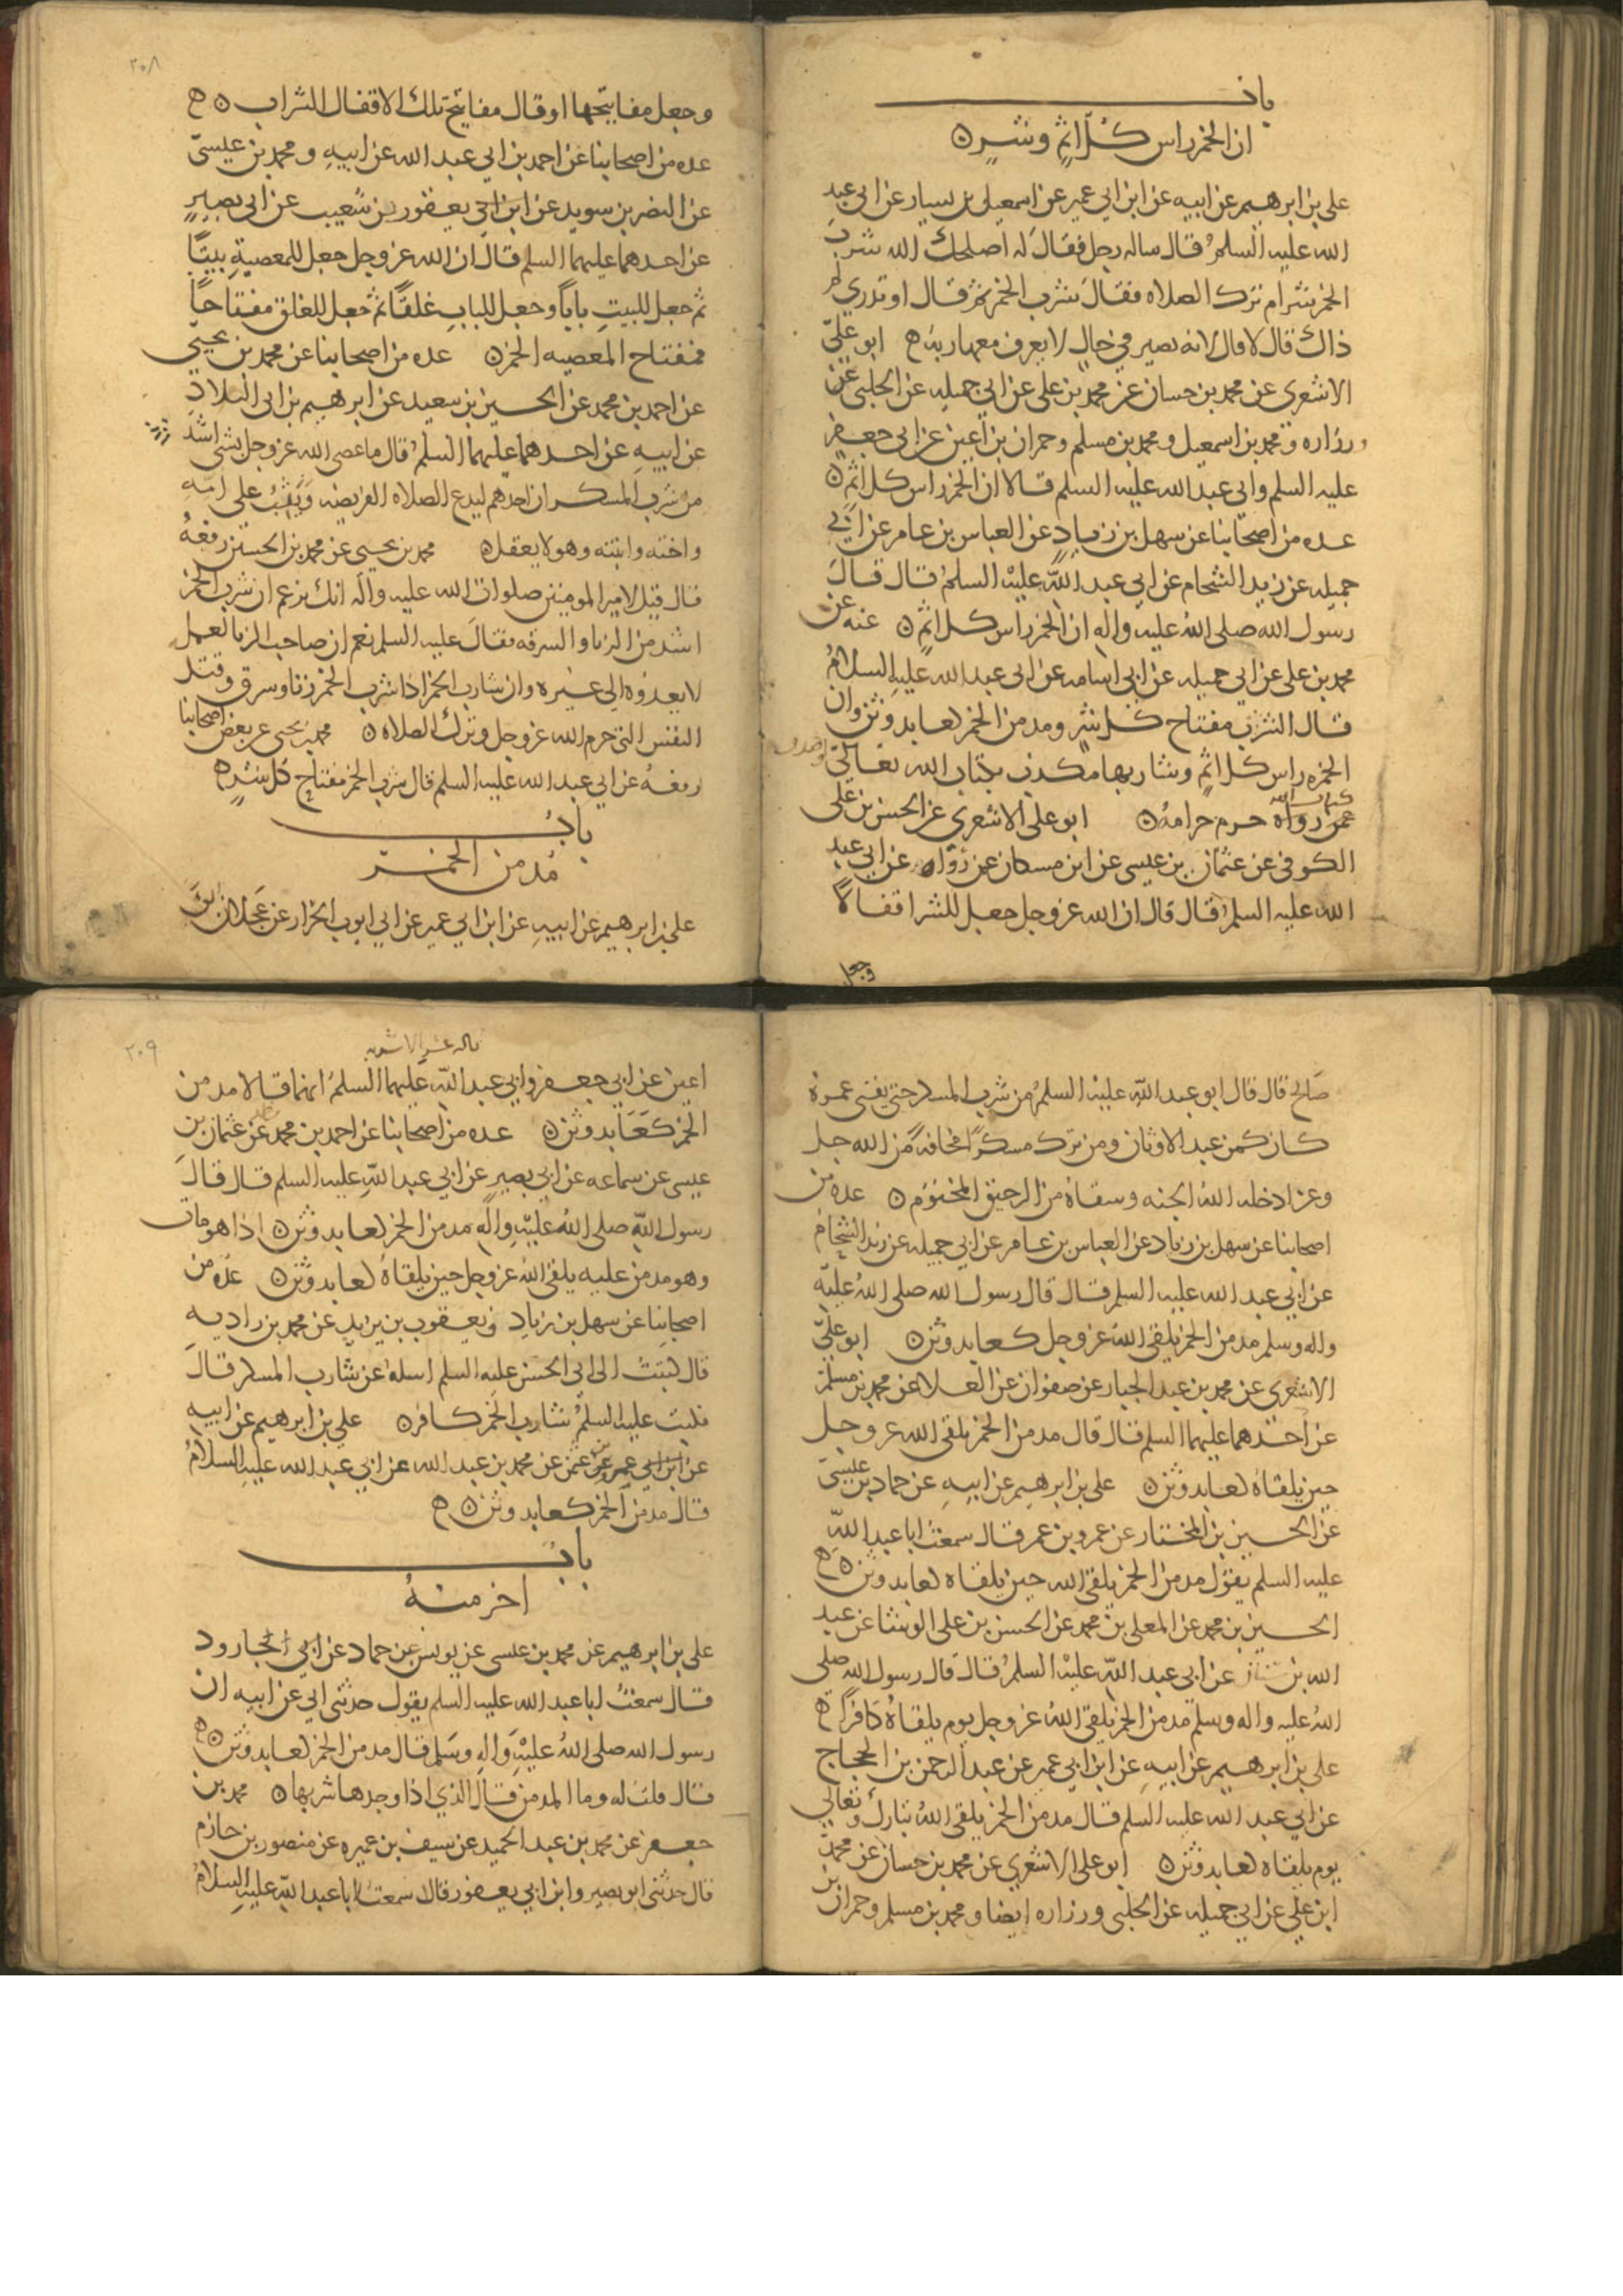 باب
ان الخمر راس كل اثم وشر
علي بن ابرهيم عن ابيه عن ابن ابي عمير عن اسمعيل بن يسار عن ابي عبد
الله عليه السلم قال ساله رجل فقال له اصلحك الله شرب
الخمر شر ام ترك الصلاه فقال شرب الخمر ثم قال او تدري لم
ذاك قال لا قال لانه يصير في حال لا يعرف معها ربه ابو علي
الاشعري عن محمد بن حسان عن محمد بن علي عن ابي جميله عن الحلبي عن
وزراره ومحمد بن اسمعيل ومحمد بن مسلم وحمران بن اعين عن ابي جعفر
عليه السلم وابي عبد الله عليه السلم قالا ان الخمر راس كل اثم
عده من اصحابنا عن سهل بن زياد عن العباس بن عامر عن ابي
جميله عن زيد الشحام عن ابي عبد الله عليه السلم قال قال
رسول الله صلى الله عليه واله ان الخمر راس كل اثم عنه عن
محمد بن علي عن ابي جميله عن ابي اسامه عن ابي عبد الله عليه السلام
قال الشرب مفتاح كل شر ومدمن الخمر كعابد وثن وان
الخمره راس كل اثم وشاربها مكذب بكتاب الله تعالى
كتاب الله حرم حرامه ابو علي الاشعري عن الحسن بن علي
الكوفي عن عثمان بن عيسى عن ابن مسكان عن رواه عن ابي عبد
الله عليه السلم قال قال ان الله عز وجل جعل للشر اقفالا
وجعل
٢٠٨
وجعل مفاتيحها او قال مفاتيح تلك الاقفال الشراب
عده من اصحابنا عن احمد بن ابي عبد الله عن ابيه ومحمد بن عيسى
عن النضر بن سويد عن ابن ابي يعفور بن شعيب عن ابي بصير
عن احدهما عليهما السلم قال ان الله عز وجل جعل للمعصية بيتا
ثم جعل للبيت بابا وجعل للباب غلقا ثم جعل للغلق مفتاحا
فمفتاح المعصيه الخمر عده من اصحابنا عن محمد بن يحيى
عن احمد بن محمد عن الحسين بن سعيد عن ابرهيم بن ابي البلاد
عن ابيه عن احدهما عليهما السلم قال ما عصى الله عز وجل بشي اشد
من شرب المسكر ان احدهم ليدع الصلاه الفريضه ويثب على امه
واخته وابنته وهو لا يعقل محمد بن يحيى عن محمد بن الحسين رفعه
قال قيل لامير المومنين صلوات الله عليه واله انك تزعم ان شرب الخمر
اشد من الزنا والسرقه فقال عليه السلم نعم ان صاحب الزنا لعمل
لا يعدوه الي غيره وان شارب الخمر اذا شرب الخمر زنا وسرق وقتل
النفس التي حرم الله عز وجل وترك الصلاه محمد بن يحيى عن بعض اصحابنا
رفعه عن ابي عبد الله عليه السلم قال شرب الخمر مفتاح كل شر
باب
مدمن الخمر
علي بن ابرهيم عن ابيه عن ابن ابي عمير عن ابي ايوب الخزار عن عجلان ابي
صالح قال قال ابو عبد الله عليه السلم من شرب المسكر حتى يفنى عمره
كان كمن عبد الاوثان ومن ترك مسكرا مخافة من الله جل
وعز ادخله الله الجنه وسقاه من الرحيق المختوم عده من
اصحابنا عن سهل بن زياد عن العباس بن عامر عن ابي جميله عن زيد الشحام
عن ابي عبد الله عليه السلم قال قال رسول الله صلى الله عليه
واله وسلم مدمن الخمر يلقى الله عز وجل كعابد وثن ابو علي
الاشعري عن محمد بن عبد الجبار عن صفوان عن العلا عن محمد بن مسلم
عن احدهما عليهما السلم قال قال مدمن الخمر يلقى الله عز وجل
حين يلقاه كعابد وثن علي بن ابرهيم عن ابيه عن حماد بن عيسى
عن الحسين بن المختار عن عمرو بن عمر قال سمعت ابا عبد الله
عليه السلم يقول مدمن الخمر يلقى الله حين يلقاه كعابد وثن
الحسين بن محمد عن المعلى بن محمد عن الحسن بن علي الوشا عن عبد
الله بن سنان عن ابي عبد الله عليه السلم قال قال رسول الله صلى
الله عليه واله وسلم مدمن الخمر يلقى الله عز وجل يوم يلقاه كافرا
علي بن ابرهيم عن ابيه عن ابن ابي عمير عن عبد الرحمن بن الحجاج
عن ابي عبد الله عليه السلم قال مدمن الخمر يلقى الله تبارك وتعالى
يوم يلقاه كعابد وثن ابو علي الاشعري عن محمد بن حسان عن محمد
ابن علي عن ابي جميله عن الحلبي وزراره ايضا ومحمد بن مسلم وحمران بن
٢٠٩
اعين عن ابي جعفر وابي عبد الله عليهما السلم انهما قالا مدمن
الخمر كعابد وثن عده من اصحابنا عن احمد بن محمد عن عثمان بن
عيسى عن سماعه عن ابي بصير عن ابي عبد الله عليه السلم قال قال
رسول الله صلى الله عليه واله مدمن الخمر كعابد وثن اذا هو مات
وهو مدمن عليه يلقى الله عز وجل حين يلقاه كعابد وثن عده من
اصحابنا عن سهل بن زياد ويعقوب بن يزيد عن محمد بن راديه
قال كتبت الى ابي الحسن عليه السلم اسله عن شارب المسكر قال
فكتب عليه السلم شارب الخمر كافر علي بن ابرهيم عن ابيه
عن ابن ابي عمير عن محمد بن عبد الله عن ابي عبد الله عليه السلام
قال مدمن الخمر كعابد وثن
باب
اخر منه
علي بن ابرهيم عن محمد بن عيسى عن يونس عن حماد عن ابي الجارود
قال سمعت ابا عبد الله عليه السلم يقول حدثني ابي عن ابيه ان
رسول الله صلى الله عليه واله وسلم قال مدمن الخمر كعابد وثن
قال قلت له وما المدمن قال الذي اذا وجدها شربها محمد بن
جعفر عن محمد بن عبد الحميد عن سيف بن عميره عن منصور بن حازم
قال حدثني ابو بصير وابن ابي يعفور قالا سمعت ابا عبد الله عليه السلام